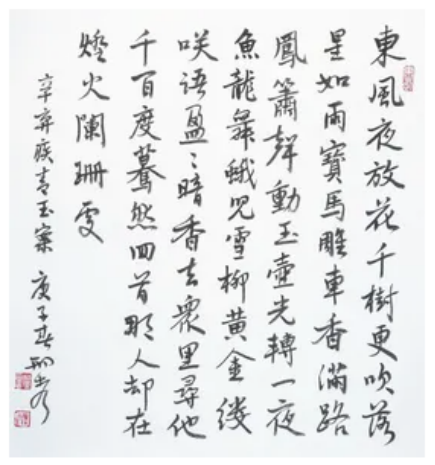 東風夜放花千樹更吹落
星如雨寶馬雕車香滿路
鳳簫聲動玉壺光轉一夜
魚龍舞蛾兒雪柳黄金縷
咲語盈〻暗香去衆里尋他
千百度驀然回首那人却在
燈火闌珊處
辛弃疾青玉案 庚子春